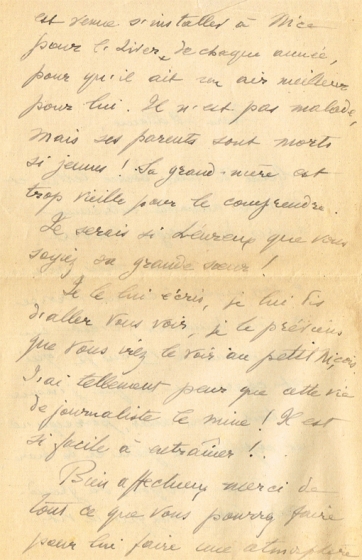 est venue s'installer à Nice
pour l'hiver, de chaque année,
pour qu'il ait un air meilleur
pour lui. Il n'est pas malade,
mais ses parents sont morts
si jeunes ! Sa grand-mère est
trop vieille pour le comprendre.
Je serais si heureux que vous
soyiez sa grande sœur !
Je le lui écris, je lui dis
d'aller vous voir, je le préviens
que vous irez le voir au petit Niçois.
J'ai tellement peur que cette vie
de journaliste le mine ! Il est
si facile à entraîner !..
Bien affectueux merci de
tout ce que vous pourrez faire
pour lui faire une atmosphère